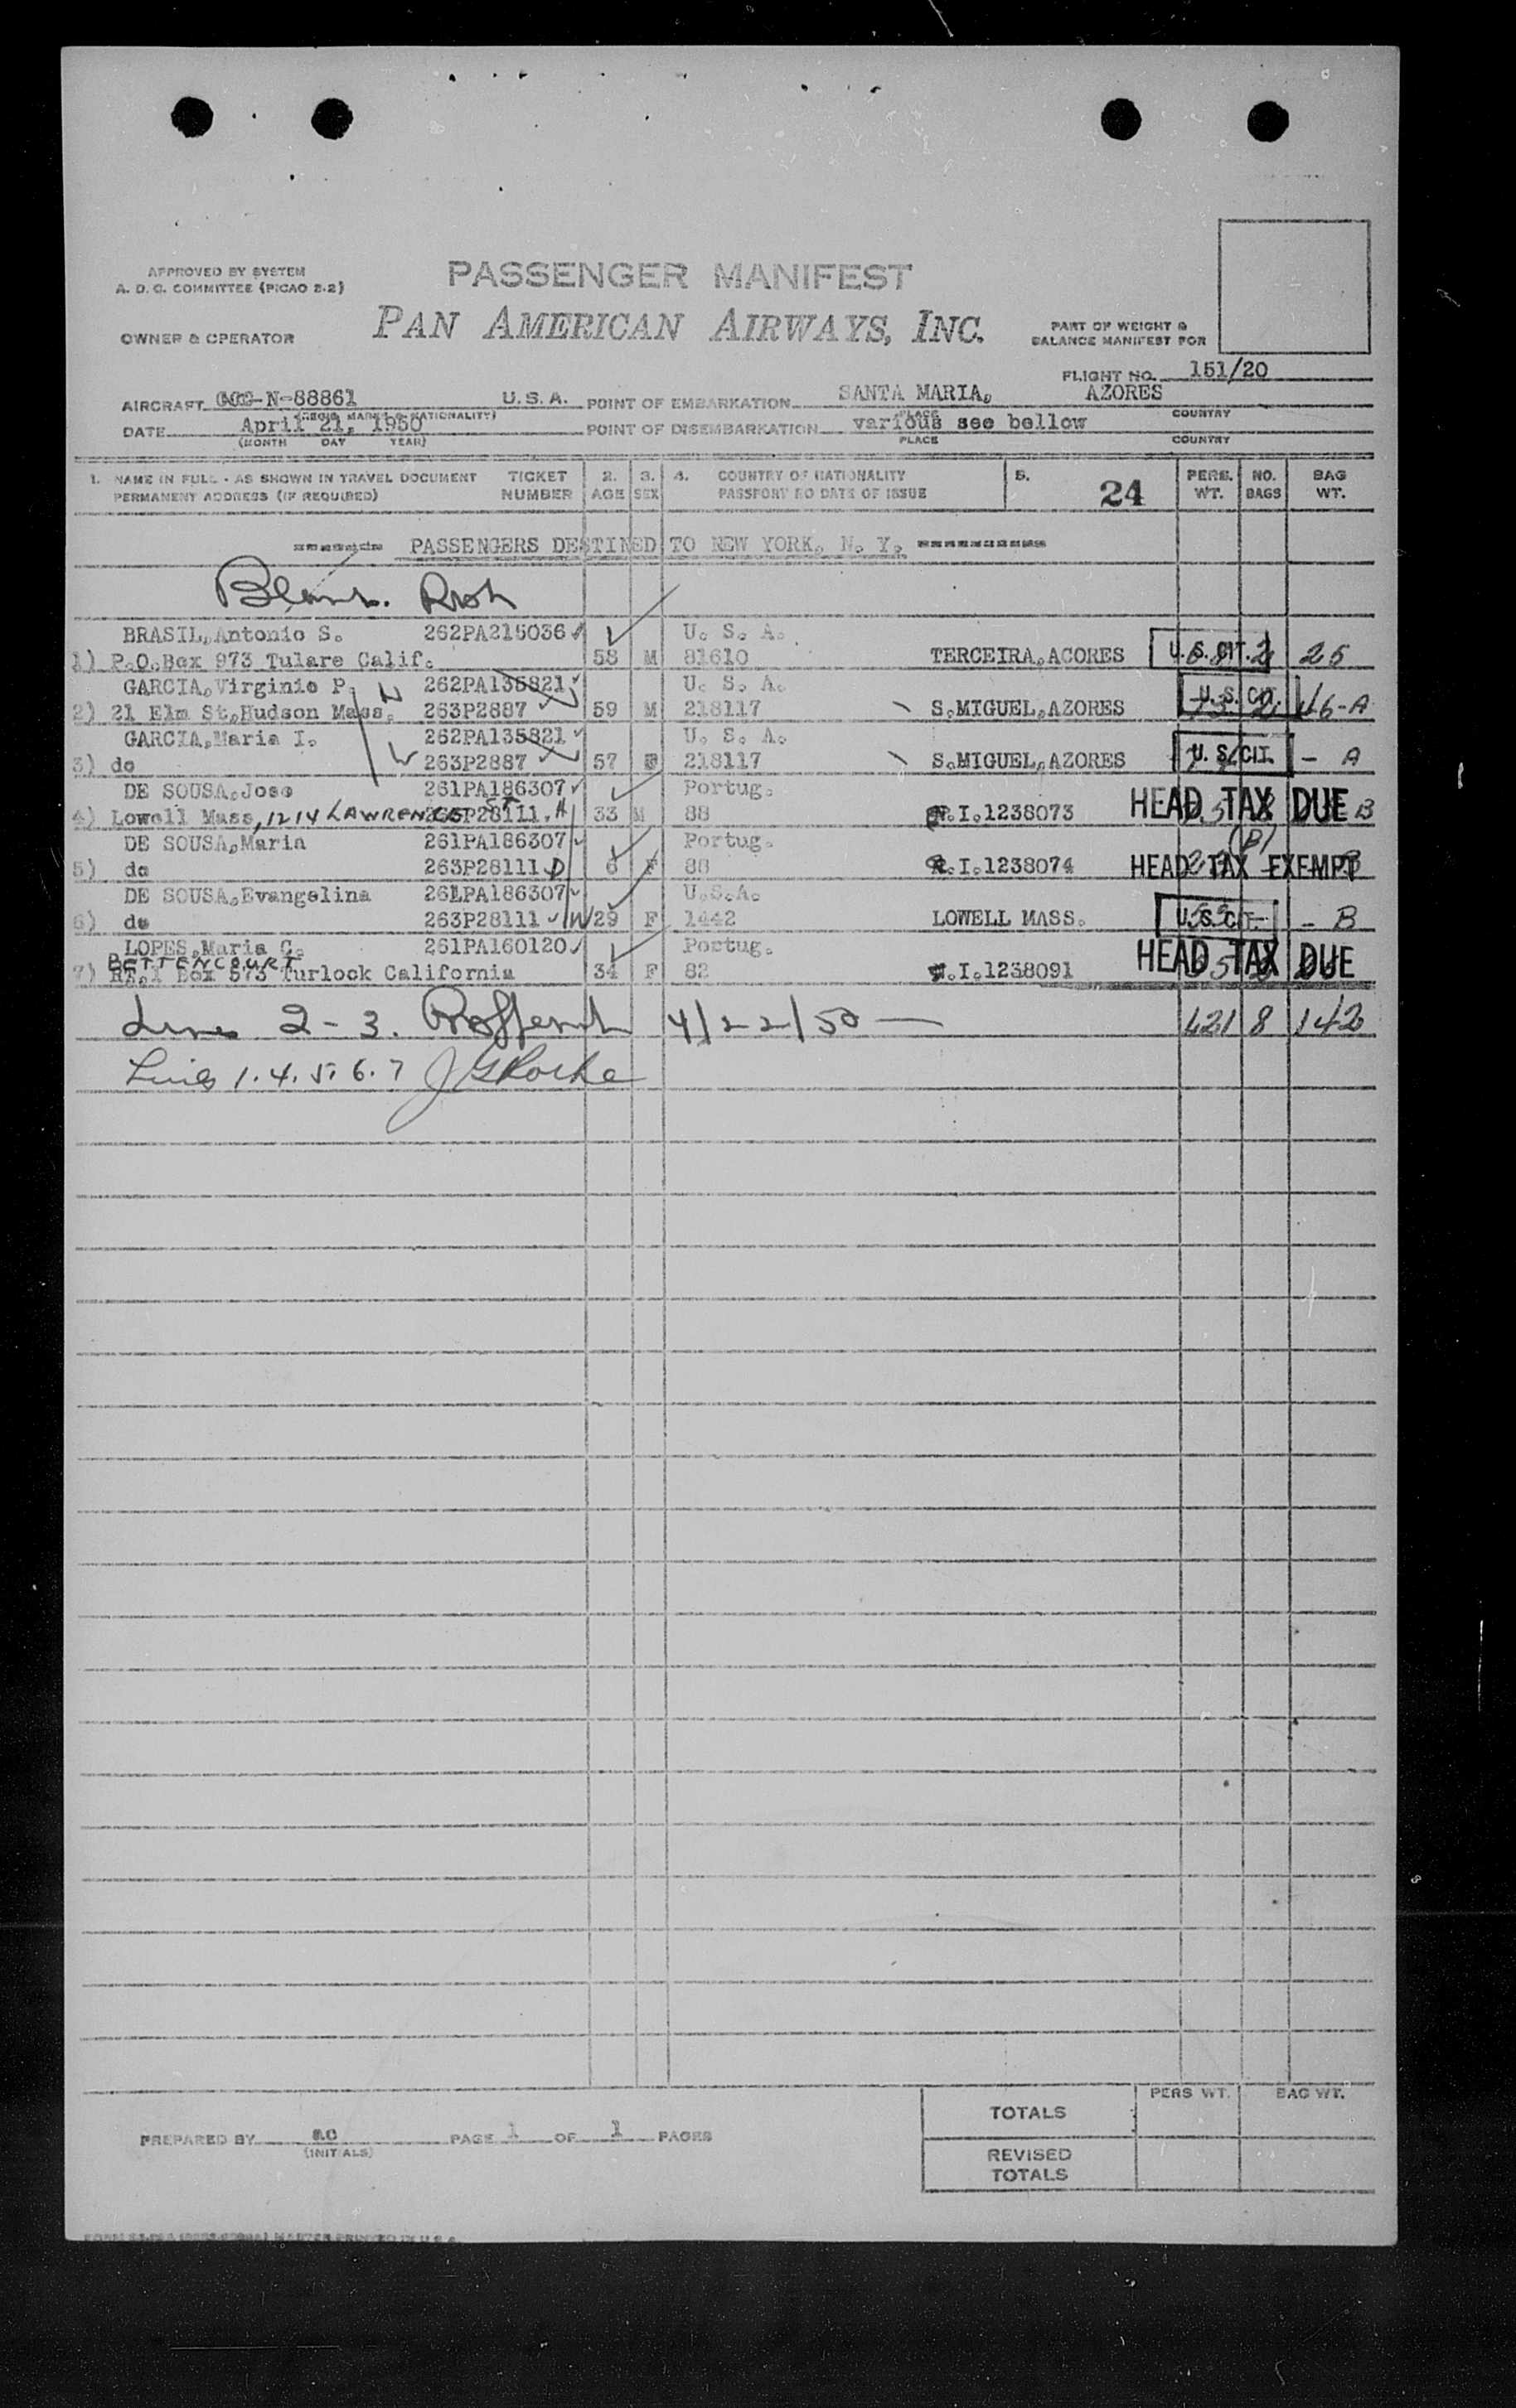 APPROVED BY SYSTEM
A. D. C. COMMITTEE (PICAO 2.2)
PASSENGER MANIFEST
OWNER & OPERATOR
PAN AMERICAN AIRWAYS, INC.
PART OF WEIGHT &
BALANCE MANIFEST FOR
FLIGHT NO. 151/20
AIRCRAFT N-88861 U.S.A. POINT OF EMBARKATION SANTA MARIA, AZORES
(REGIS. MARKS & NATIONALITY) PLACE COUNTRY
DATE April 21, 1950 POINT OF DISEMBARKATION various see bellow
(MONTH DAY YEAR) PLACE COUNTRY
1. NAME IN FULL - AS SHOWN IN TRAVEL DOCUMENT TICKET 2. 3. 4. COUNTRY OF NATIONALITY 5. PERS. NO. BAG
PERMANENT ADDRESS (IF REQUIRED) NUMBER AGE SEX PASSPORT NO DATE OF ISSUE 24 WT. BAGS WT.
PASSENGERS DESTINED TO NEW YORK, N. Y.
BRASIL,Antonio S. 262PA215036 U. S. A.
1) P.O.Box 973 Tulare Calif. 58 M 81610 TERCEIRA,ACORES U. S. CIT. 2 25
GARCIA,Virginio P. 262PA135821 U. S. A.
2) 21 Elm St,Hudson Mass. 263P2887 59 M 218117 S.MIGUEL,AZORES U. S. CIT. 46-A
GARCIA,Maria I. 262PA135821 U. S. A.
3) do 263P2887 57 F 218117 S.MIGUEL,AZORES U. S. CIT. - A
DE SOUSA,Jose 261PA186307 Portug.
4) Lowell Mass, 1214 LAWRENCE ST 263P28111 33 M 88 I.1238073 HEAD TAX DUE B
DE SOUSA,Maria 261PA186307 Portug.
5) do 263P28111 6 F 88 I.1238074 HEAD TAX EXEMPT
DE SOUSA,Evangelina 261PA186307 U.S.A.
6) do 263P28111 29 F 1442 LOWELL MASS. U. S. CIT. - B
LOPES,Maria C. 261PA160120 Portug.
BETTENCOURT
7) Rt.1 Box 573 Turlock California 34 F 82 I.1238091 HEAD TAX DUE
Lines 2-3. 4/22/50 421 8 142
Lines 1.4.5.6.7
PERS WT. BAG WT.
TOTALS
PREPARED BY ac PAGE 1 OF 1 PAGES
(INITIALS)
REVISED
TOTALS